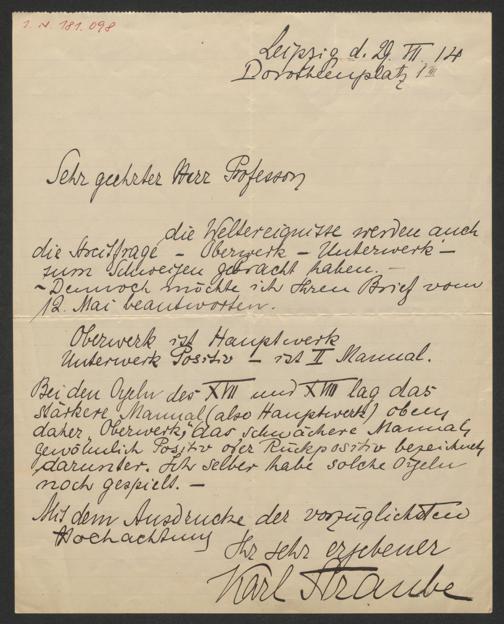 I. N. 181.098
Leipzig d. 29. VII. 14
Dorotheenplatz 1 III
Sehr geehrter Herr Professor,
die Weltereignisse werden auch
die Streitfrage – Oberwerk – Unterwerk –
zum Schweigen gebracht haben. –
– Dennoch möchte ich Ihren Brief vom
12. Mai beantworten.
Oberwerk ist Hauptwerk
Unterwerk Positiv – ist II Manual.
Bei den Orgeln des XVII und XVIII lag das
stärkere Manual (also Hauptwerk) oben,
daher "Oberwerk"; das schwächere Manual,
gewöhnlich Positiv oder Rückpositiv bezeichnet,
darunter. Ich selber habe solche Orgeln
noch gespielt. –
Mit dem Ausdrucke der vorzüglichsten
Hochachtung
Ihr sehr ergebener
Karl Straube